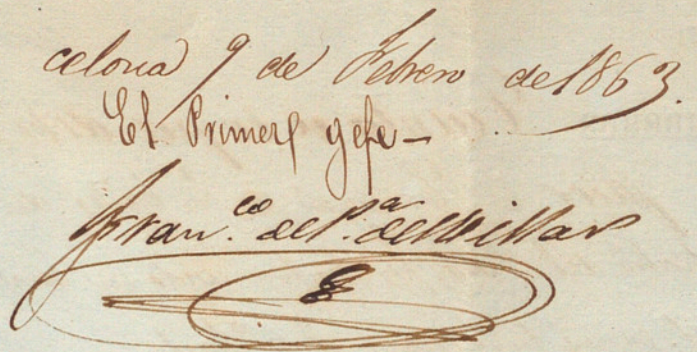 celona 9 de Febrero de 1863.
El Primer gefe—
Fran.co de P.a del Villar